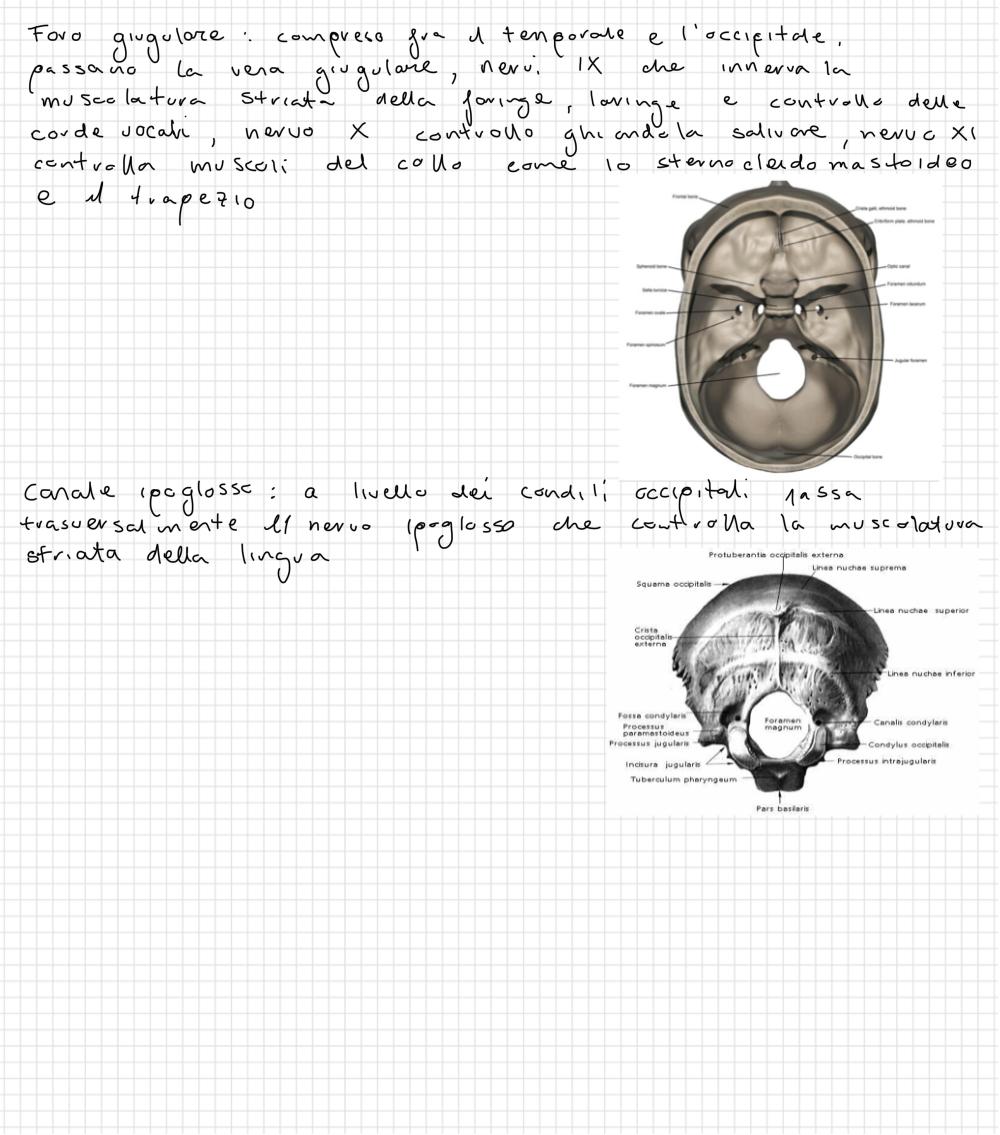 Foro giugulare : compreso fra il temporale e l'occipitale,
passano la vena giugulare, nervi IX che innerva la
muscolatura striata della faringe, laringe e controllo delle
corde vocali, nervo X controllo ghiandola salivare, nervo XI
controlla muscoli del collo come lo sternocleidomastoideo
e il trapezio
Frontal bone
Crista galli, ethmoid bone
Cribriform plate, ethmoid bone
Sphenoid bone
Optic canal
Sella turcica
Foramen rotundum
Foramen ovale
Foramen lacerum
Foramen spinosum
Jugular foramen
Foramen magnum
Occipital bone
Canale ipoglosso : a livello dei condili occipitali passa
trasversalmente il nervo ipoglosso che controlla la muscolatura
striata della lingua
Protuberantia occipitalis externa
Linea nuchae suprema
Squama occipitalis
Linea nuchae superior
Crista
occipitalis
externa
Linea nuchae inferior
Fossa condylaris
Foramen
magnum
Canalis condylaris
Processus
paramastoideus
Processus jugularis
Condylus occipitalis
Incisura jugularis
Processus intrajugularis
Tuberculum pharyngeum
Pars basilaris